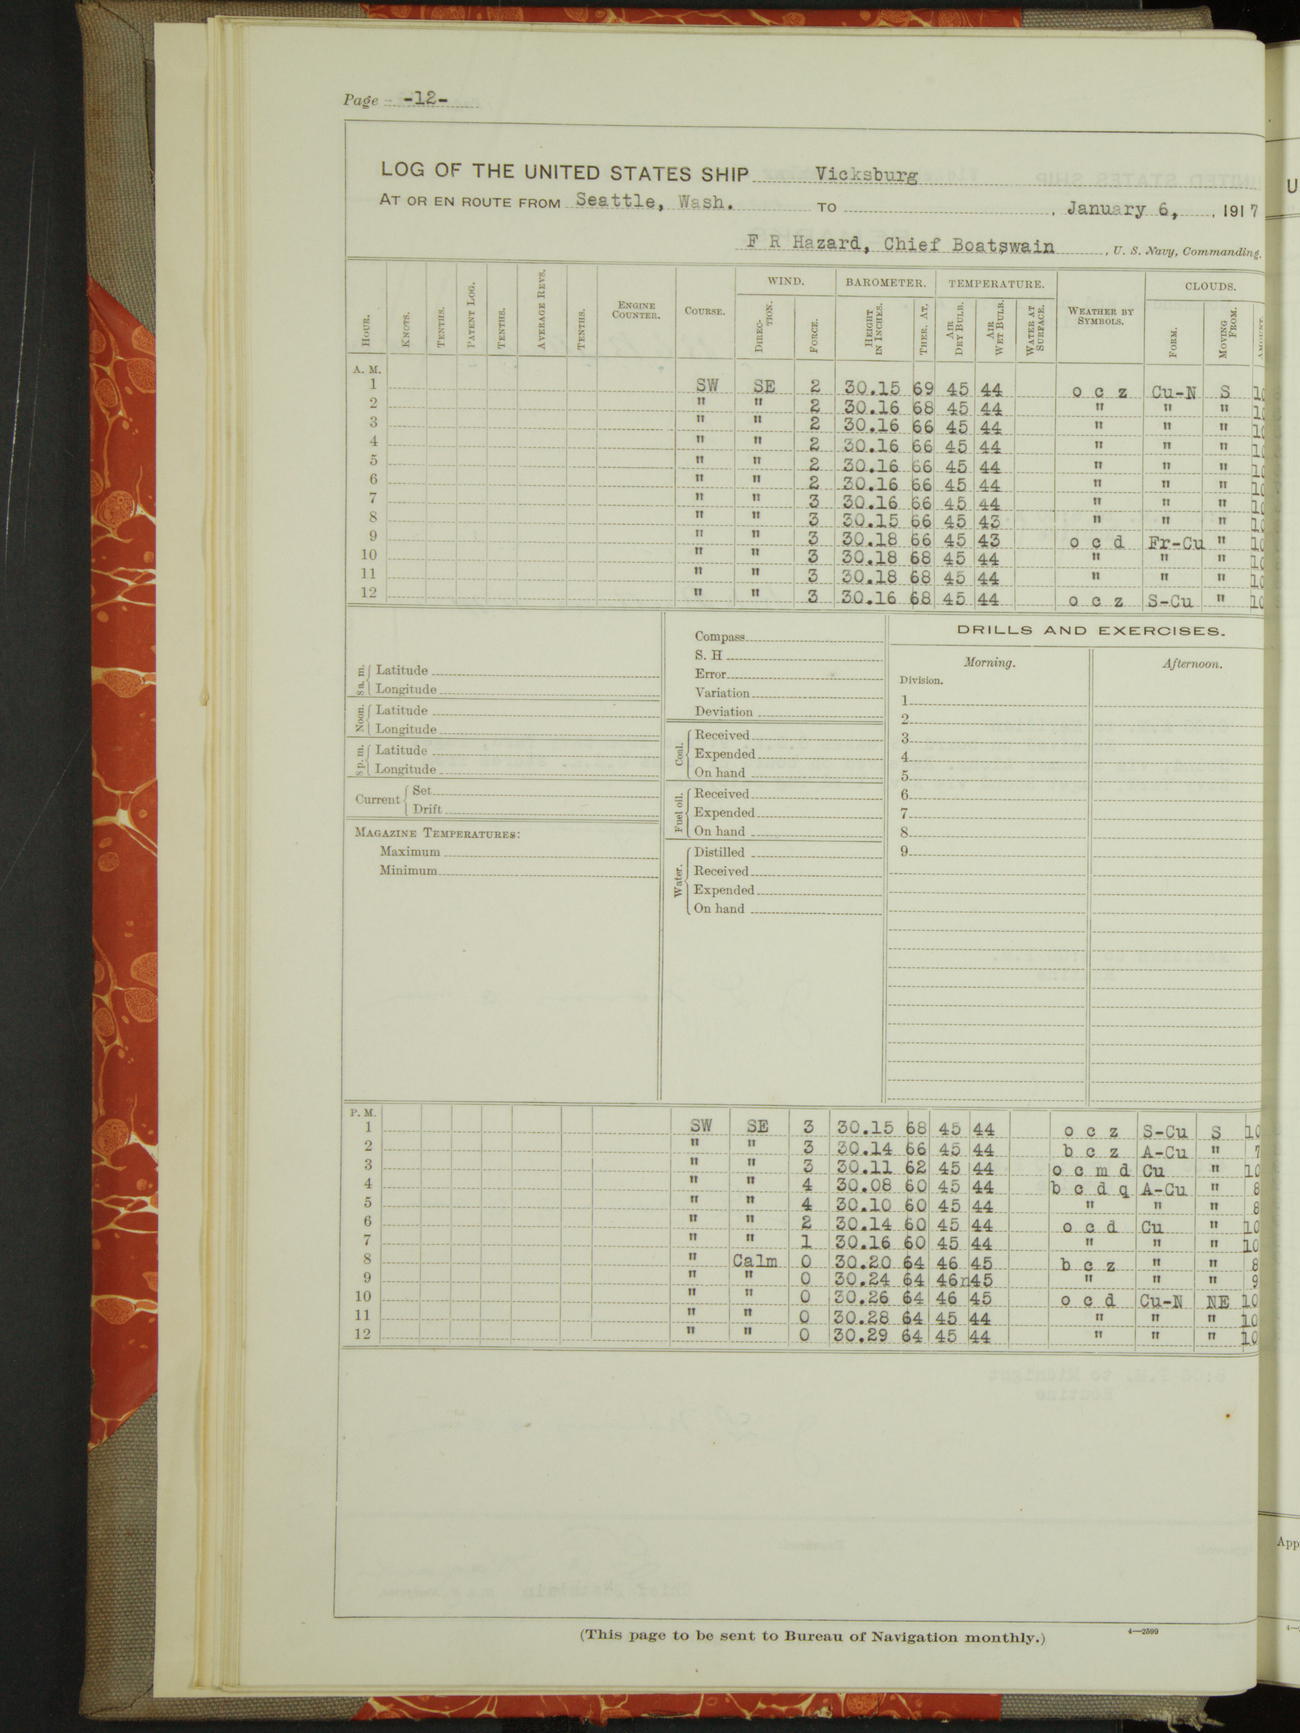 Page -12-
LOG OF THE UNITED STATES SHIP Vicksburg
AT OR EN ROUTE FROM Seattle, Wash. TO , January 6, , 1917
F R Hazard, Chief Boatswain , U. S. Navy, Commanding.
WIND. BAROMETER. TEMPERATURE. CLOUDS.
HOUR. KNOTS. TENTHS. PATENT LOG. TENTHS. AVERAGE REVS. TENTHS. ENGINE COUNTER. COURSE. DIRECTION. FORCE. HEIGHT IN INCHES. THER. AT. AIR DRY BULB. AIR WET BULB. WATER AT SURFACE. WEATHER BY SYMBOLS. FORM. MOVING FROM. AMOUNT.
A. M.
1 SW SE 2 30.15 69 45 44 o c z Cu-N S 10
2 " " 2 30.16 68 45 44 " " " 10
3 " " 2 30.16 66 45 44 " " " 10
4 " " 2 30.16 66 45 44 " " " 10
5 " " 2 30.16 66 45 44 " " " 10
6 " " 2 30.16 66 45 44 " " " 10
7 " " 3 30.16 66 45 44 " " " 10
8 " " 3 30.15 66 45 43 " " " 10
9 " " 3 30.18 66 45 43 o c d Fr-Cu " 10
10 " " 3 30.18 68 45 44 " " " 10
11 " " 3 30.18 68 45 44 " " " 10
12 " " 3 30.16 68 45 44 o c z S-Cu " 10
8 a. m. Latitude
Longitude
Noon. Latitude
Longitude
8 p. m. Latitude
Longitude
Current Set
Drift
MAGAZINE TEMPERATURES:
Maximum
Minimum
Compass
S. H
Error
Variation
Deviation
Coal. Received
Expended
On hand
Fuel oil. Received
Expended
On hand
Water. Distilled
Received
Expended
On hand
DRILLS AND EXERCISES.
Morning. Afternoon.
Division.
1
2
3
4
5
6
7
8
9
P. M.
1 SW SE 3 30.15 68 45 44 o c z S-Cu S 10
2 " " 3 30.14 66 45 44 b c z A-Cu " 7
3 " " 3 30.11 62 45 44 o c m d Cu " 10
4 " " 4 30.08 60 45 44 b c d q A-Cu " 8
5 " " 4 30.10 60 45 44 " " " 8
6 " " 2 30.14 60 45 44 o c d Cu " 10
7 " " 1 30.16 60 45 44 " " " 10
8 " Calm 0 30.20 64 46 45 b c z " " 8
9 " " 0 30.24 64 46 45 " " " 9
10 " " 0 30.26 64 46 45 o c d Cu-N NE 10
11 " " 0 30.28 64 45 44 " " " 10
12 " " 0 30.29 64 45 44 " " " 10
(This page to be sent to Bureau of Navigation monthly.) 4—2599
U
App